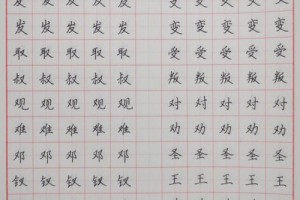 发 发 发 发 发 变 变 变 变 变
发 发 发 发 发 变 变 变 变 变
取 取 取 取 取 受 受 受 受 受
叔 叔 叔 叔 叔 叛 叛 叛 叛 叛
观 观 观 观 观 对 对 对 对 对
难 难 难 难 难 劝 劝 劝 劝 劝
邓 邓 邓 邓 邓 圣 圣 圣 圣 圣
钗 钗 钗 钗 钗 王 王 王 王 王